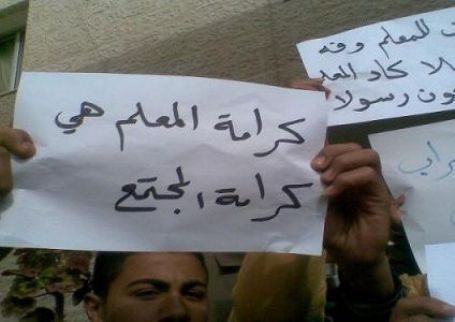 كرامة المعلم هي
كرامة المجتمع
للمعلم وفه
كاد المعلم
رسولا